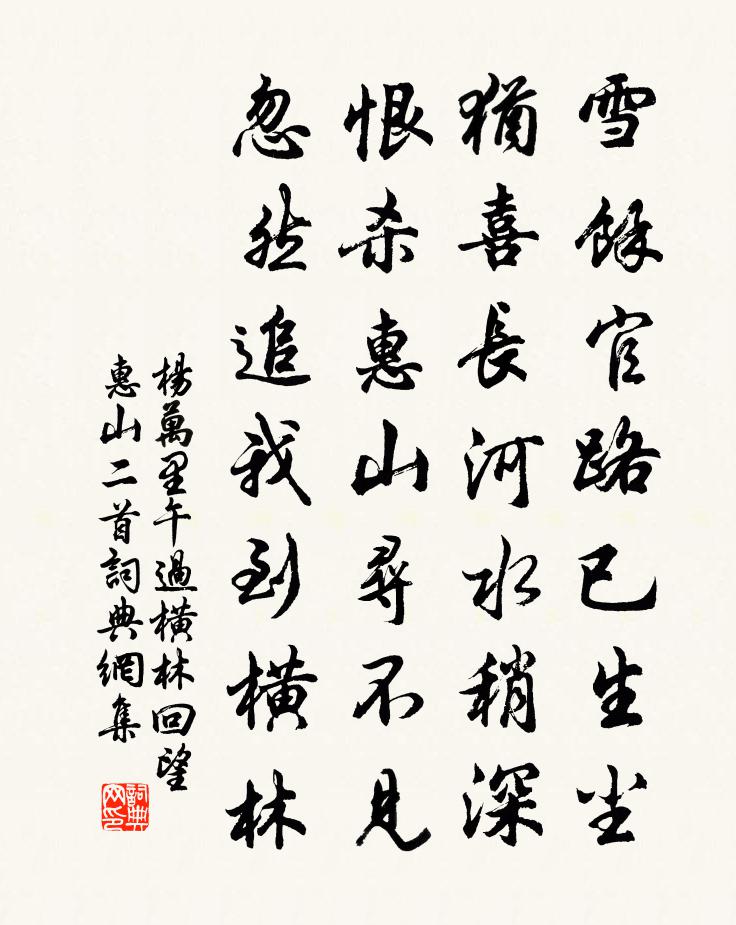 雪餘官路已生尘
猶喜長河水稍深
恨杀惠山尋不見
忽然追我到横林
楊萬里午過横林回望
惠山二首詞典網集
詞典网印